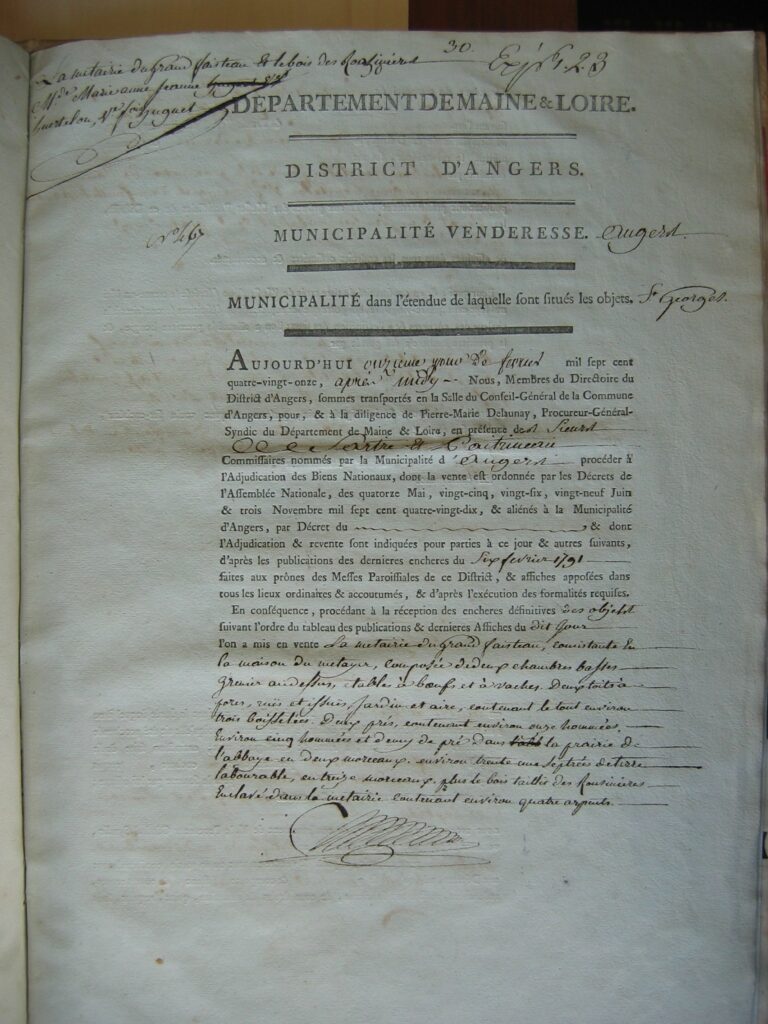 30. Exp. 123
La metairie du grand faisteau & le bois des Rousinieres
Mde. Marie anne jeanne
huguet
DÉPARTEMENT DE MAINE & LOIRE.
DISTRICT D'ANGERS.
No. 167
MUNICIPALITÉ VENDERESSE. Angers
MUNICIPALITÉ dans l'étendue de laquelle sont situés les objets. St Georges.
AUJOURD'HUI onzieme jour de fevrier mil sept cent
quatre-vingt-onze, après midy Nous, Membres du Directoire du
District d'Angers, sommes transportés en la Salle du Conseil-Général de la Commune
d'Angers, pour, & à la diligence de Pierre-Marie Delaunay, Procureur-Général-
Syndic du Département de Maine & Loire, en présence des Sieurs
De Sartre et
Commissaires nommés par la Municipalité d'Angers procéder à
l'Adjudication des Biens Nationaux, dont la vente est ordonnée par les Décrets de
l'Assemblée Nationale, des quatorze Mai, vingt-cinq, vingt-six, vingt-neuf Juin
& trois Novembre mil sept cent quatre-vingt-dix, & aliénés à la Municipalité
d'Angers, par Décret du , & dont
l'Adjudication & revente sont indiquées pour parties à ce jour & autres suivants,
d'après les publications des dernieres encheres du Six fevrier 1791
faites aux prônes des Messes Paroissiales de ce District, & affiches apposées dans
tous les lieux ordinaires & accoutumés, & d'après l'exécution des formalités requises.
En conséquence, procédant à la réception des encheres définitives des objets
suivant l'ordre du tableau des publications & dernieres Affiches du dit jour
l'on a mis en vente La metairie du grand faisteau, consistante en
la maison du metayer, composée de deux chambres basses
grenier au dessus, etable à bœufs et à vaches. Deux toits à
porcs, rues et issues, jardin et aire, contenant le tout environ
trois boisselées. Deux prés, contenant environ onze hommées,
Environ cinq hommées et demy de pré dans la prairie de
l'abbaye en deux morceaux. environ trente une septrée de terre
labourable, en treize morceaux. plus le bois taillis des Rousinieres
Enclavé dans la metairie contenant environ quatre arpents.